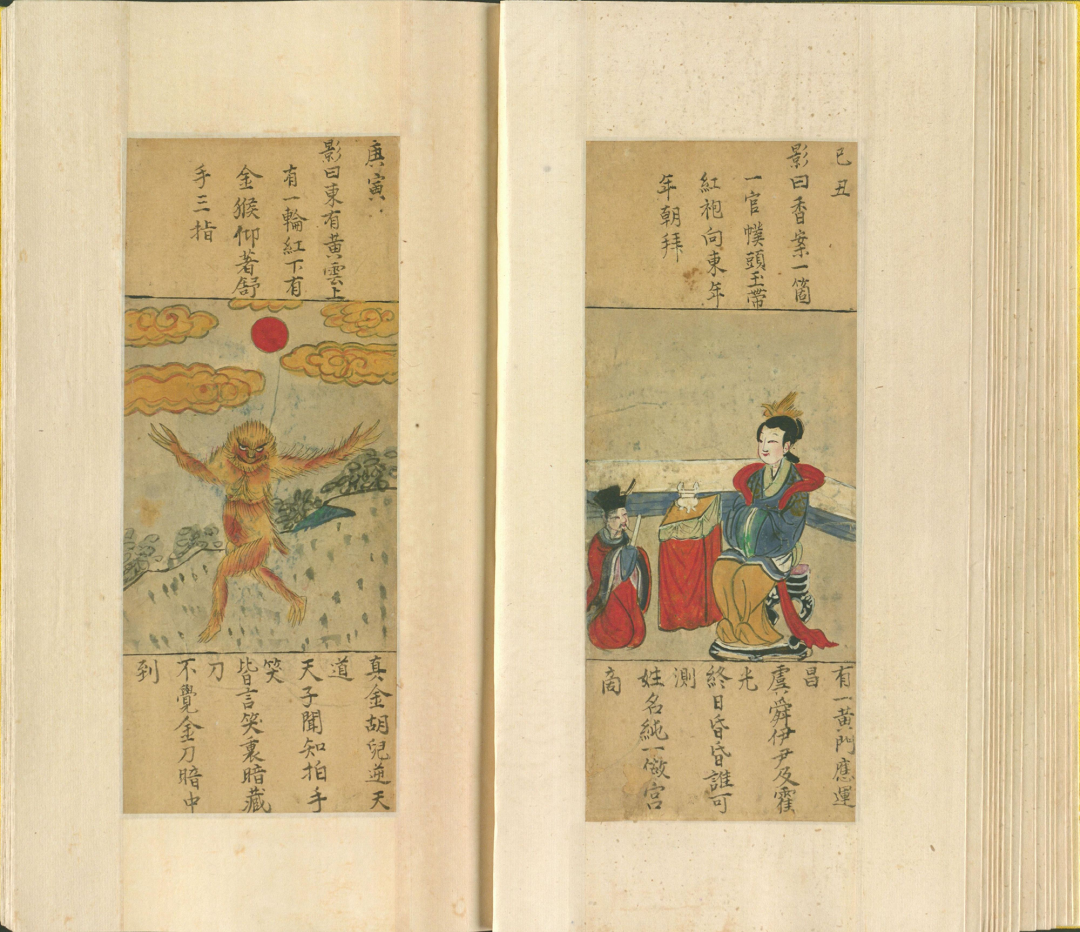 己丑
影曰香案一箇
一官幞頭玉帶
紅袍向東年
年朝拜
有一黃門應運
昌
虞舜伊尹及霍
光
終日昏昏誰可
測
姓名純一傲宫
商
庚寅
影曰東有黃雲上
有一輪紅下有
金猴仰著舒
手三指
真金胡兒逆天
道
天子聞知拍手
笑
皆言笑裏暗藏
刀
不覺金刀暗中
到